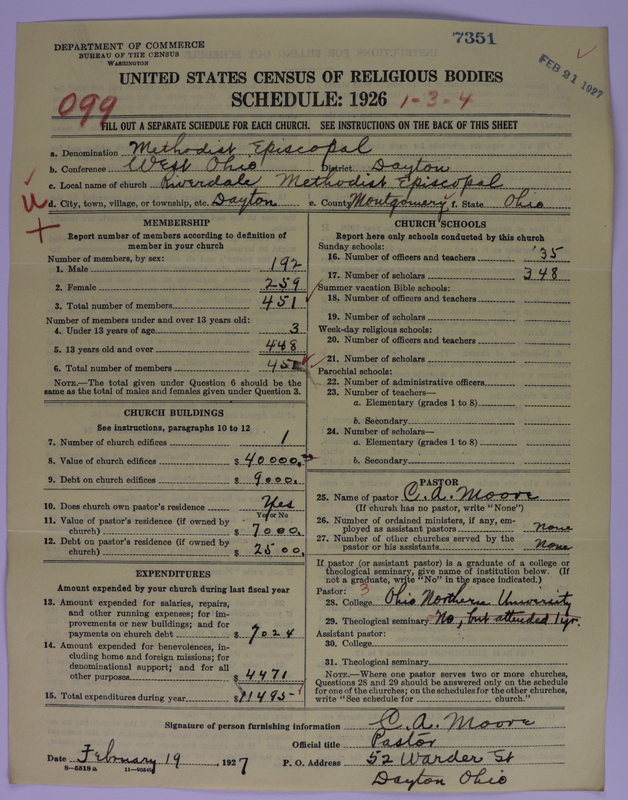 7351
FEB 21 1927
DEPARTMENT OF COMMERCE
BUREAU OF THE CENSUS
WASHINGTON
UNITED STATES CENSUS OF RELIGIOUS BODIES
SCHEDULE: 1926 1-3-4
099
FILL OUT A SEPARATE SCHEDULE FOR EACH CHURCH. SEE INSTRUCTIONS ON THE BACK OF THIS SHEET
a. Denomination Methodist Episcopal
b. Conference West Ohio District Dayton
c. Local name of church Riverdale Methodist Episcopal
d. City, town, village, or township, etc. Dayton e. County Montgomery f. State Ohio
MEMBERSHIP
Report number of members according to definition of
member in your church
Number of members, by sex:
1. Male 192
2. Female 259
3. Total number of members 451
Number of members under and over 13 years old:
4. Under 13 years of age 3
5. 13 years old and over 448
6. Total number of members 451
NOTE.—The total given under Question 6 should be the
same as the total of males and females given under Question 3.
CHURCH BUILDINGS
See instructions, paragraphs 10 to 12
7. Number of church edifices 1
8. Value of church edifices $ 40000.
9. Debt on church edifices $ 9000.
10. Does church own pastor's residence Yes
Yes or No
11. Value of pastor's residence (if owned by
church) $ 7000.
12. Debt on pastor's residence (if owned by
church) $ 2500.
EXPENDITURES
Amount expended by your church during last fiscal year
13. Amount expended for salaries, repairs,
and other running expenses; for im-
provements or new building; and for
payments on church debt $ 7024
14. Amount expended for benevolences, in-
cluding home and foreign missions; for
denominational support; and for all
other purposes $ 4471
15. Total expenditures during year $ 11495
CHURCH SCHOOLS
Report here only schools conducted by this church
Sunday schools:
16. Number of officers and teachers 35
17. Number of scholars 348
Summer vacation Bible schools:
18. Number of officers and teachers
19. Number of scholars
Week-day religious schools:
20. Number of officers and teachers
21. Number of scholars
Parochial schools:
22. Number of administrative officers
23. Number of teachers—
a. Elementary (grades 1 to 8)
b. Secondary
24. Number of scholars—
a. Elementary (grades 1 to 8)
b. Secondary
PASTOR
25. Name of pastor C. A. Moore
(If church has no pastor, write "None")
26. Number of ordained ministers, if any, em-
ployed as assistant pastors none
27. Number of other churches served by the
pastor or his assistants None
If pastor (or assistant pastor) is a graduate of a college or
theological seminary, give name of institution below. (If
not a graduate, write "No" in the space indicated.)
Pastor: 3
28. College Ohio Northern University
29. Theological seminary No, but attended 1 yr.
Assistant pastor:
30. College
31. Theological seminary
NOTE.—Where one pastor serves two or more churches,
Questions 28 and 29 should be answered only on the schedule
for one of the churches; on the schedules for the other churches,
write "See schedule for church."
Signature of person furnishing information C. A. Moore
Official title Pastor
Date February 19, 1927 P. O. Address 52 Warder St
8—5518a Dayton Ohio